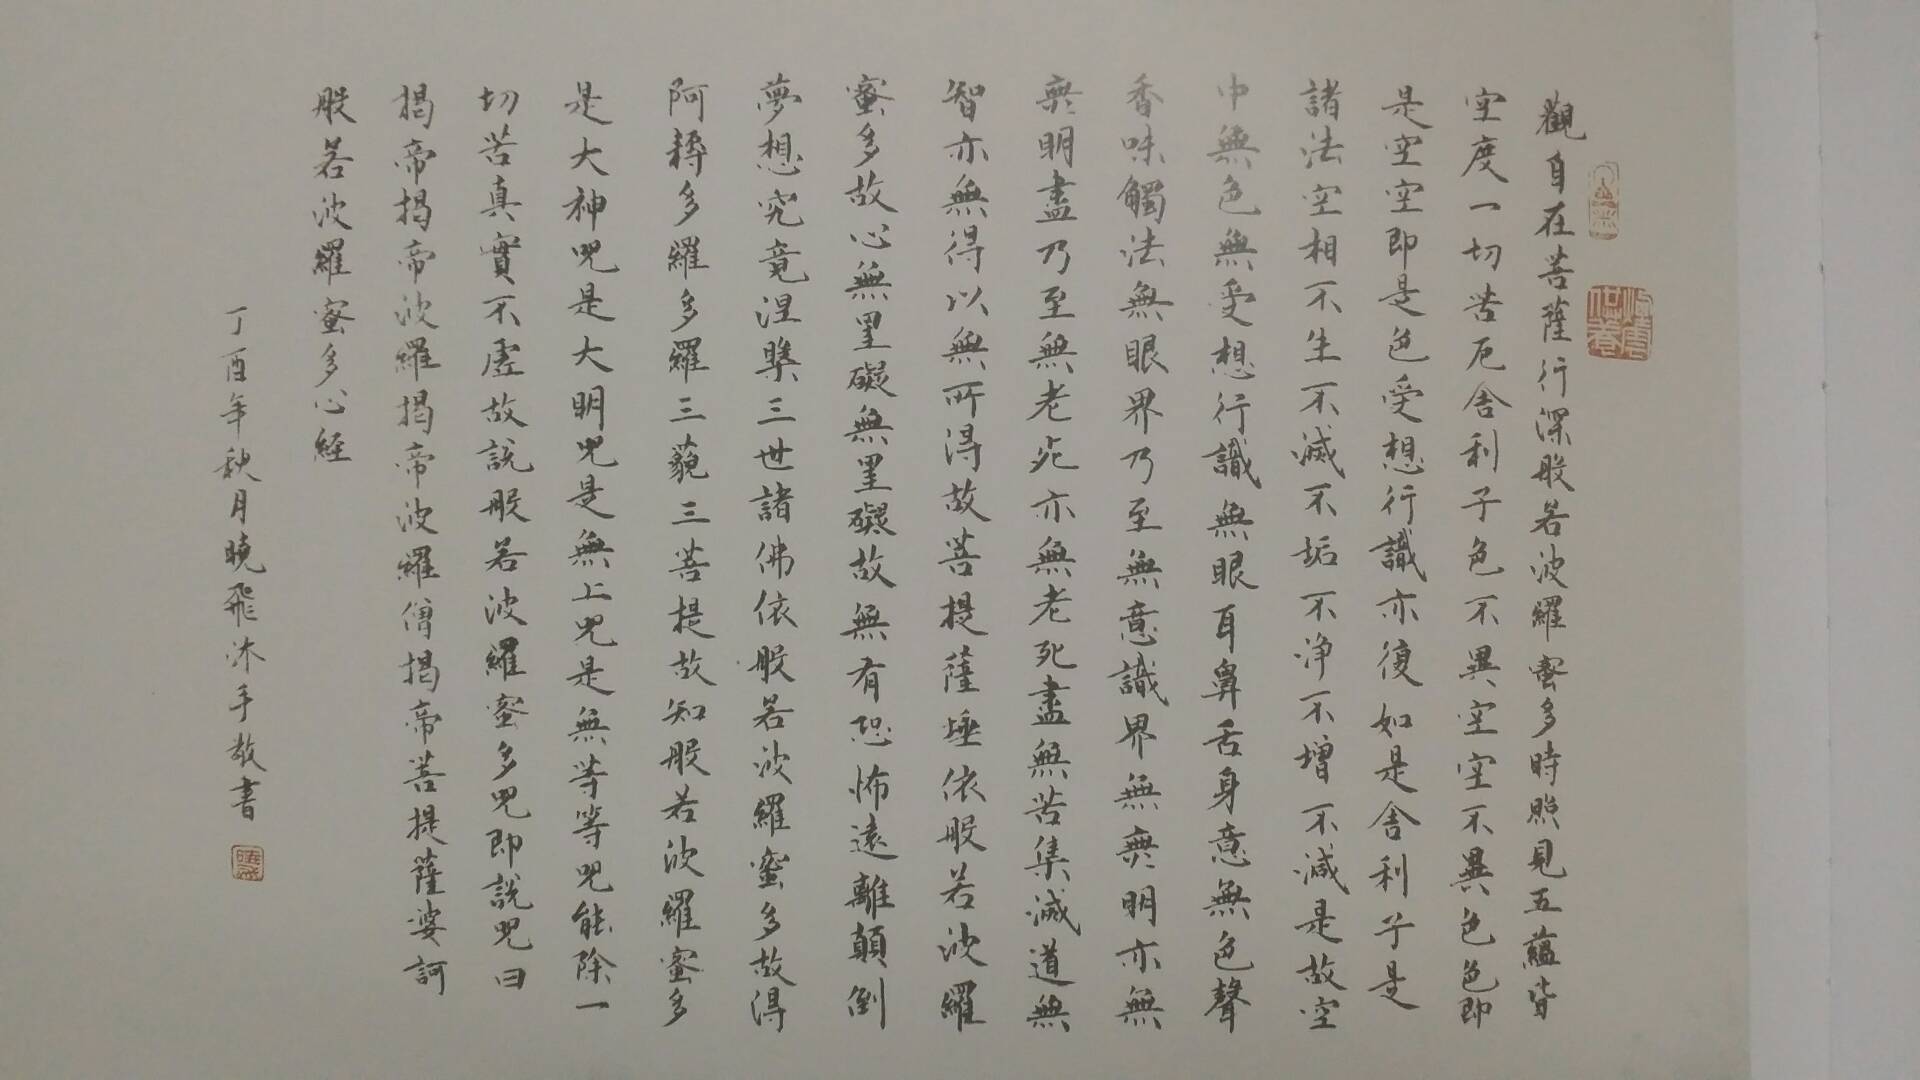 觀自在菩薩行深般若波羅蜜多時照見五蘊皆
空度一切苦厄舍利子色不異空空不異色色即
是空空即是色受想行識亦復如是舍利子是
諸法空相不生不滅不垢不净不增不減是故空
中無色無受想行識無眼耳鼻舌身意無色聲
香味觸法無眼界乃至無意識界無無明亦無
無明盡乃至無老死亦無老死盡無苦集滅道無
智亦無得以無所得故菩提薩埵依般若波羅
蜜多故心無罣礙無罣礙故無有恐怖遠離顛倒
夢想究竟涅槃三世諸佛依般若波羅蜜多故得
阿耨多羅多羅三藐三菩提故知般若波羅蜜多
是大神咒是大明咒是無上咒是無等等咒能除一
切苦真實不虛故說般若波羅蜜多咒即說咒曰
揭帝揭帝波羅揭帝波羅僧揭帝菩提薩婆訶
般若波羅蜜多心經
丁酉年秋月曉飛沐手敬書